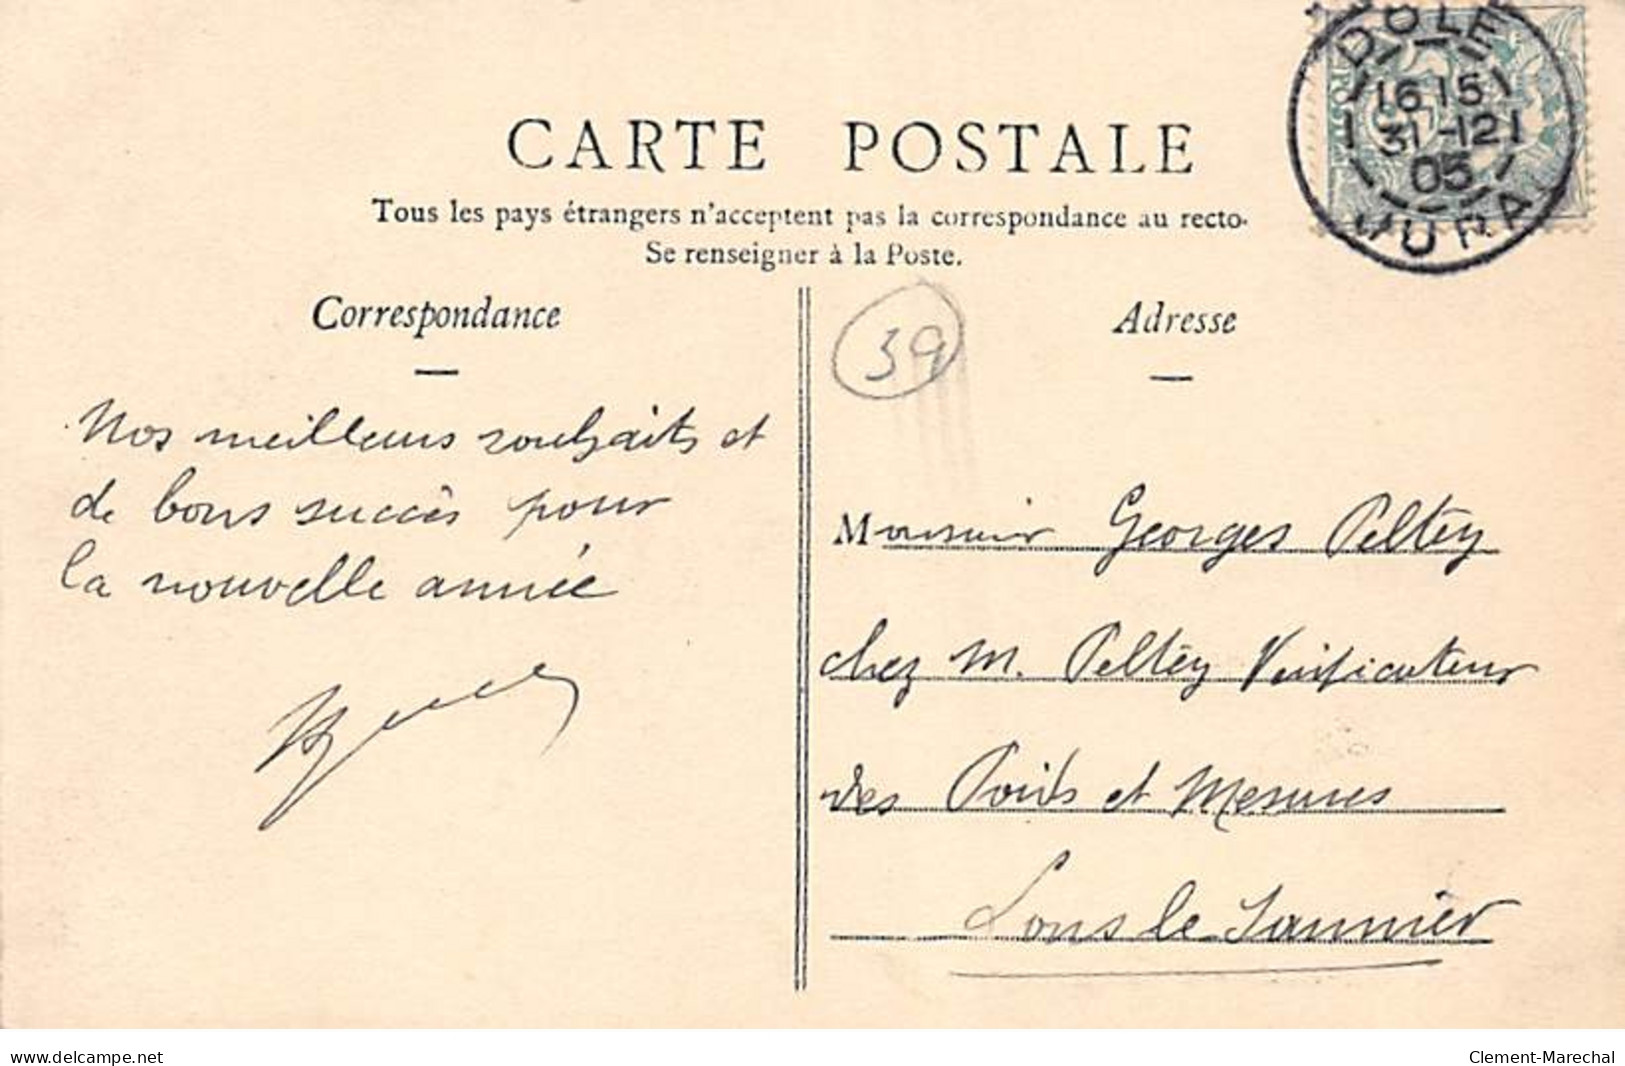 DOLE
16 15
31 -12
05
JURA
CARTE POSTALE
Tous les pays étrangers n'acceptent pas la correspondance au recto.
Se renseigner à la Poste.
Correspondance
39
Adresse
Nos meilleurs souhaits et
de bons succès pour
la nouvelle année
Monsieur Georges Peltéy
chez M. Peltéy Vérificateur
des Poids et Mesures
Lons le Saunier
www.delcampe.net
Clement-Marechal